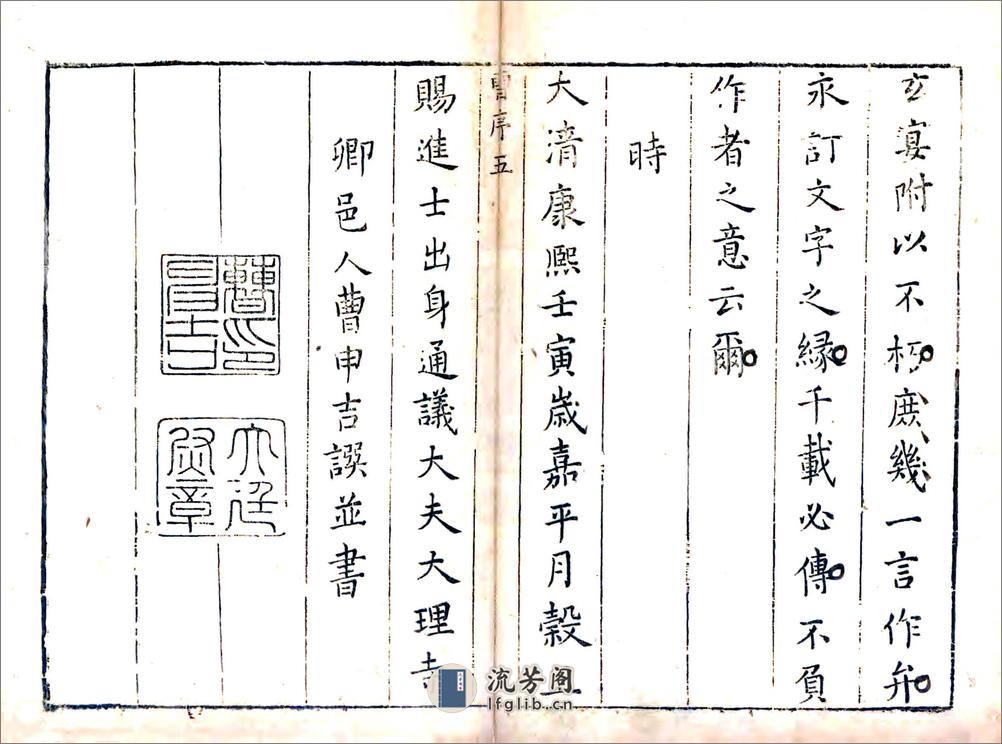 玄宴附以不朽庶幾一言作弁
永訂文字之緣千載必傳不負
作者之意云爾
時
大清康熙壬寅歲嘉平月穀
曹序五
賜進士出身通議大夫大理寺
卿邑人曹申吉譔並書
曹印申吉
流芳阁
lfglib.cn